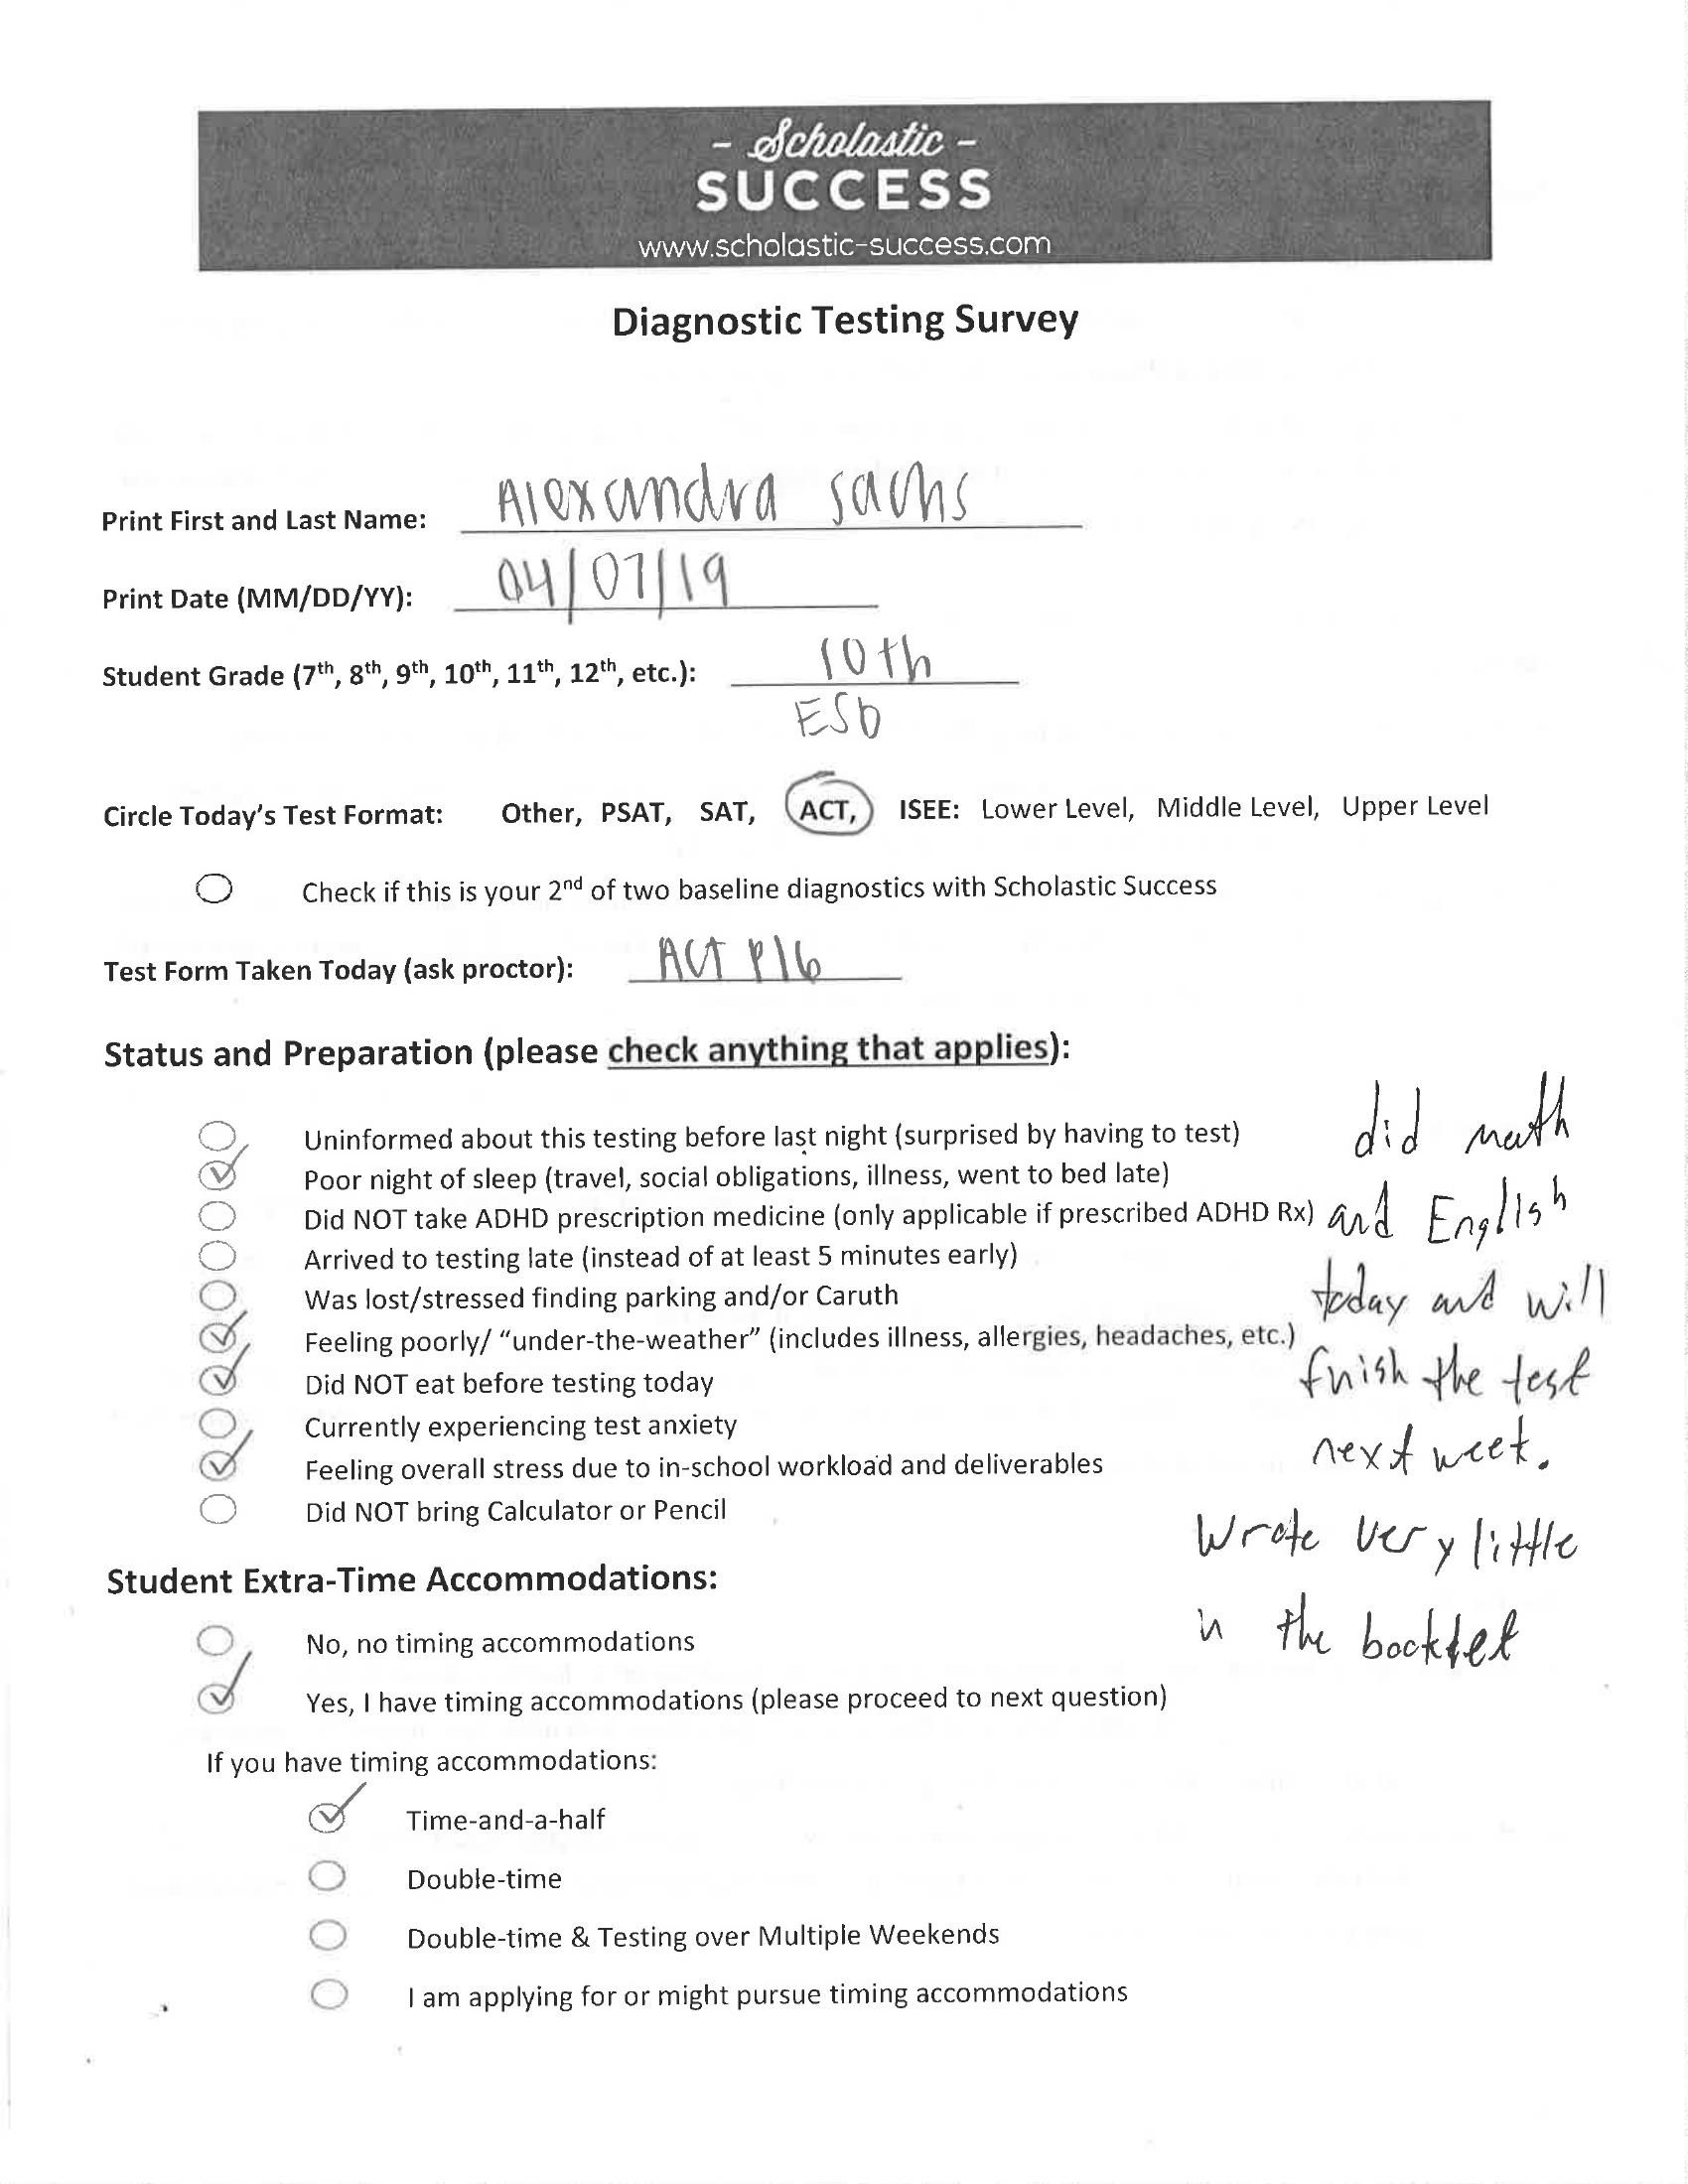 - Scholastic -
SUCCESS
www.scholastic-success.com
Diagnostic Testing Survey
Print First and Last Name: Alexandra Sachs
Print Date (MM/DD/YY): 04/07/19
Student Grade (7th, 8th, 9th, 10th, 11th, 12th, etc.): 10th
ESD
Circle Today's Test Format: Other, PSAT, SAT, ACT, ISEE: Lower Level, Middle Level, Upper Level
Check if this is your 2nd of two baseline diagnostics with Scholastic Success
Test Form Taken Today (ask proctor): ACT P16
Status and Preparation (please check anything that applies):
Uninformed about this testing before last night (surprised by having to test)
Poor night of sleep (travel, social obligations, illness, went to bed late)
Did NOT take ADHD prescription medicine (only applicable if prescribed ADHD Rx)
Arrived to testing late (instead of at least 5 minutes early)
Was lost/stressed finding parking and/or Caruth
Feeling poorly/ "under-the-weather" (includes illness, allergies, headaches, etc.)
Did NOT eat before testing today
Currently experiencing test anxiety
Feeling overall stress due to in-school workload and deliverables
Did NOT bring Calculator or Pencil
did math
and English
today and will
finish the test
next week.
Wrote very little
in the booklet
Student Extra-Time Accommodations:
No, no timing accommodations
Yes, I have timing accommodations (please proceed to next question)
If you have timing accommodations:
Time-and-a-half
Double-time
Double-time & Testing over Multiple Weekends
I am applying for or might pursue timing accommodations